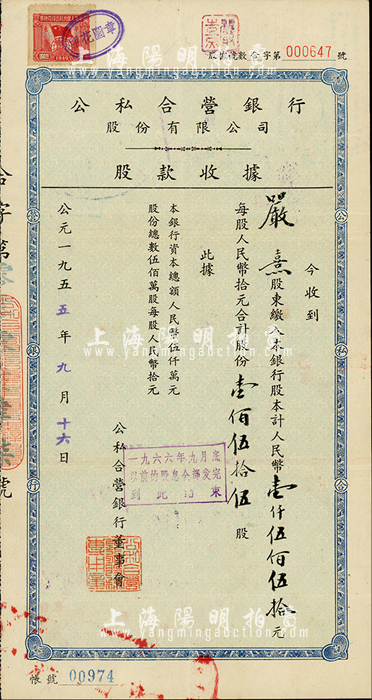 股據總數合字第 000647 號
公私合營銀行
股份有限公司
股款收據
今收到
嚴熹股東繳入本銀行股本計人民幣壹仟伍佰伍拾元
每股人民幣拾元合計股份壹佰伍拾伍股
此據
本銀行資本總額人民幣伍仟萬元
股份總數伍佰萬股每股人民幣拾元
公私合營銀行董事會
公元一九五五年九月十六日
一九六六年九月底
以前的股息全部发完
到此结束
帳號 00974
上海陽明拍賣
www.yangmingauction.com
上海陽明拍賣
www.yangmingauction.com
上海陽明拍賣
www.yangmingauction.com